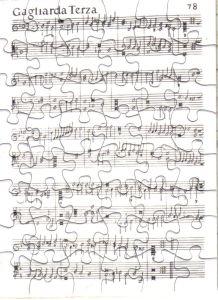 Gagliarda Terza 78